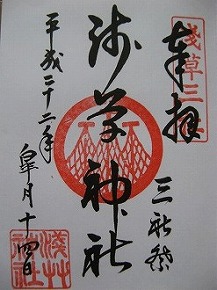 淺草三社
奉拝
三社祭
浅草神社
平成二十二年
皐月十四日
淺草神社